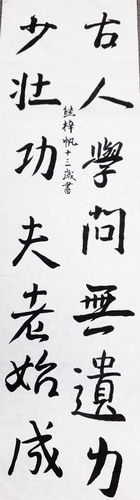 古人學問無遺力
少壯功夫老始成
熊梓帆十三歲書